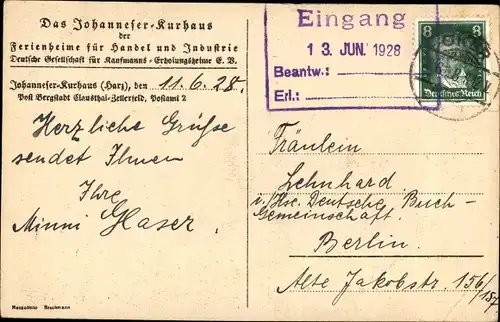 Das Johanneser-Kurhaus
der
Ferienheime für Handel und Industrie
Deutsche Gesellschaft für Kaufmanns-Erholungsheime E. V.
Johanneser-Kurhaus (Harz), den 11.6.28.
Post Bergstadt Clausthal-Zellerfeld, Postamt 2
Herzliche Grüße
sendet Ihnen
Ihre
Minni Glaser.
Eingang
13. JUN. 1928
Beantw.:
Erl.:
8 8
Deutsches Reich
Fräulein
Lehnhard
i/Hse. Deutsche Buch-
Gemeinschaft.
Berlin.
Alte Jakobstr. 156/
157
Bruckmann